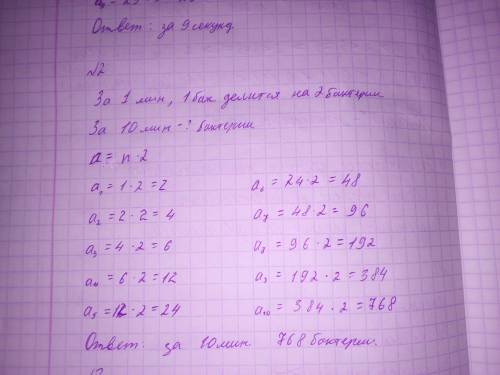 Ответ: за 9 секунд.
№2
За 1 мин, 1 бак делится на 2 бактерии
За 10 мин -? бактерии
a = n · 2
a₁ = 1 · 2 = 2
a₂ = 2 · 2 = 4
a₃ = 4 · 2 = 6
a₄ = 6 · 2 = 12
a₅ = 12 · 2 = 24
a₆ = 24 · 2 = 48
a₇ = 48 · 2 = 96
a₈ = 96 · 2 = 192
a₉ = 192 · 2 = 384
a₁₀ = 384 · 2 = 768
Ответ: за 10 мин 768 бактерии.